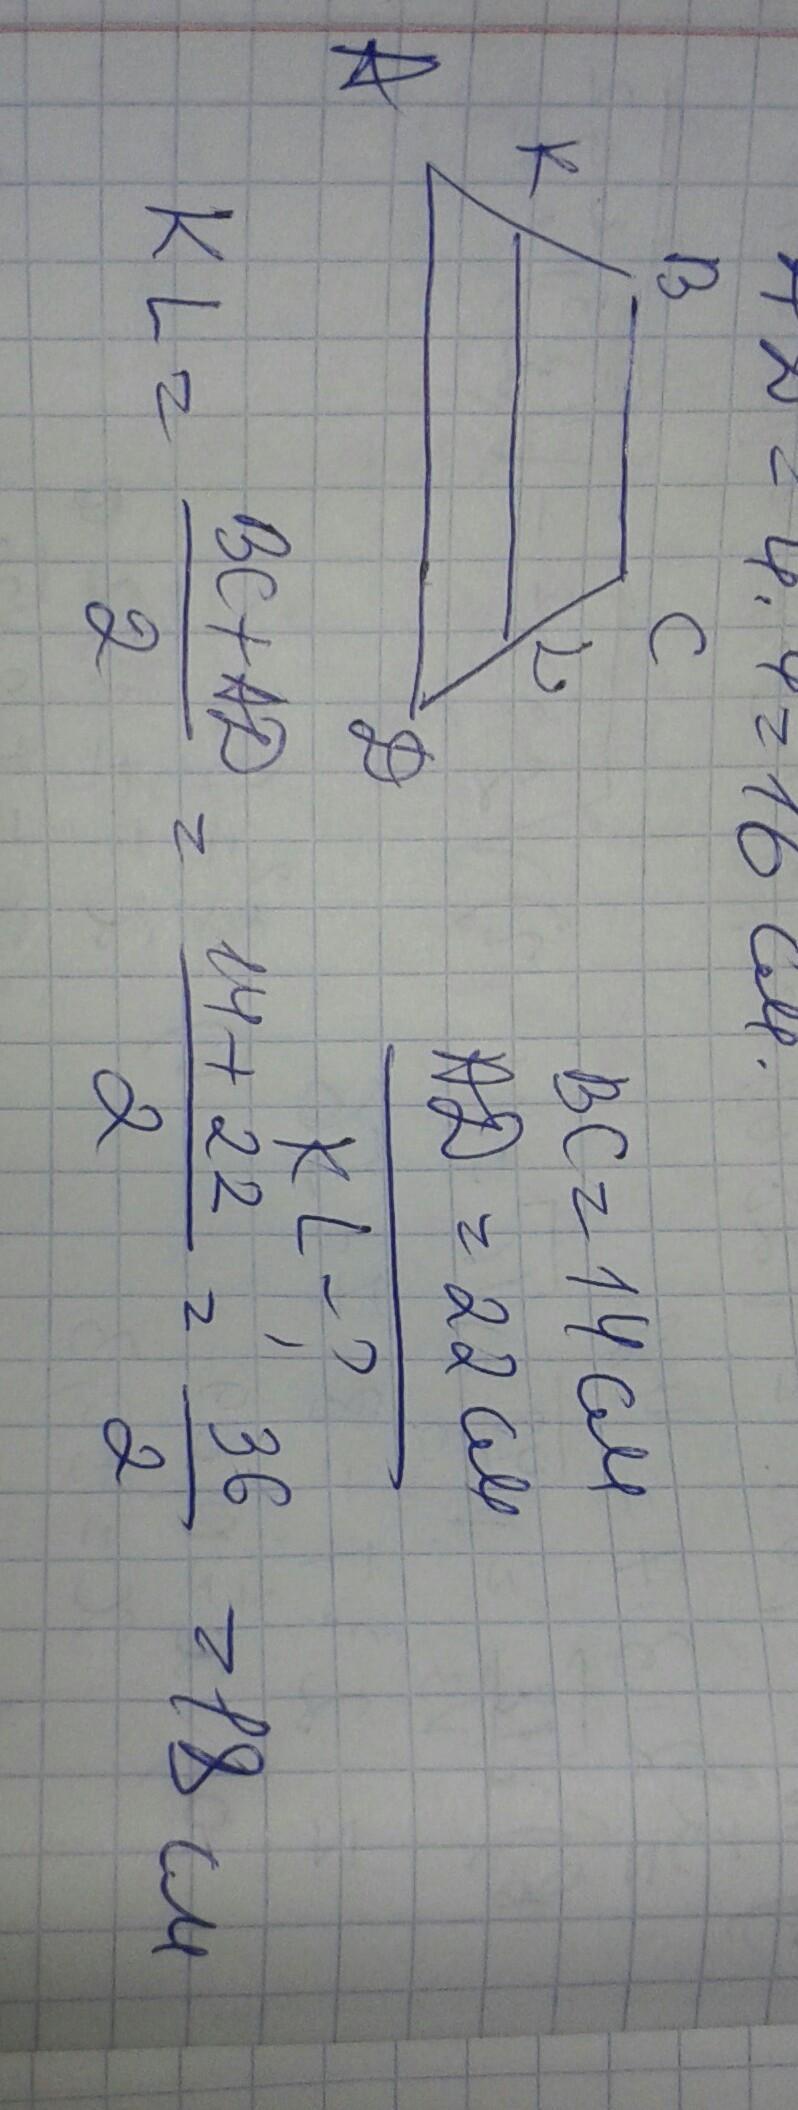 AD = 4 · 4 = 16 см.
B
C
K
L
A
D
BC = 14 см
AD = 22 см
KL - ?
KL = BC + AD / 2 = 14 + 22 / 2 = 36 / 2 = 18 см